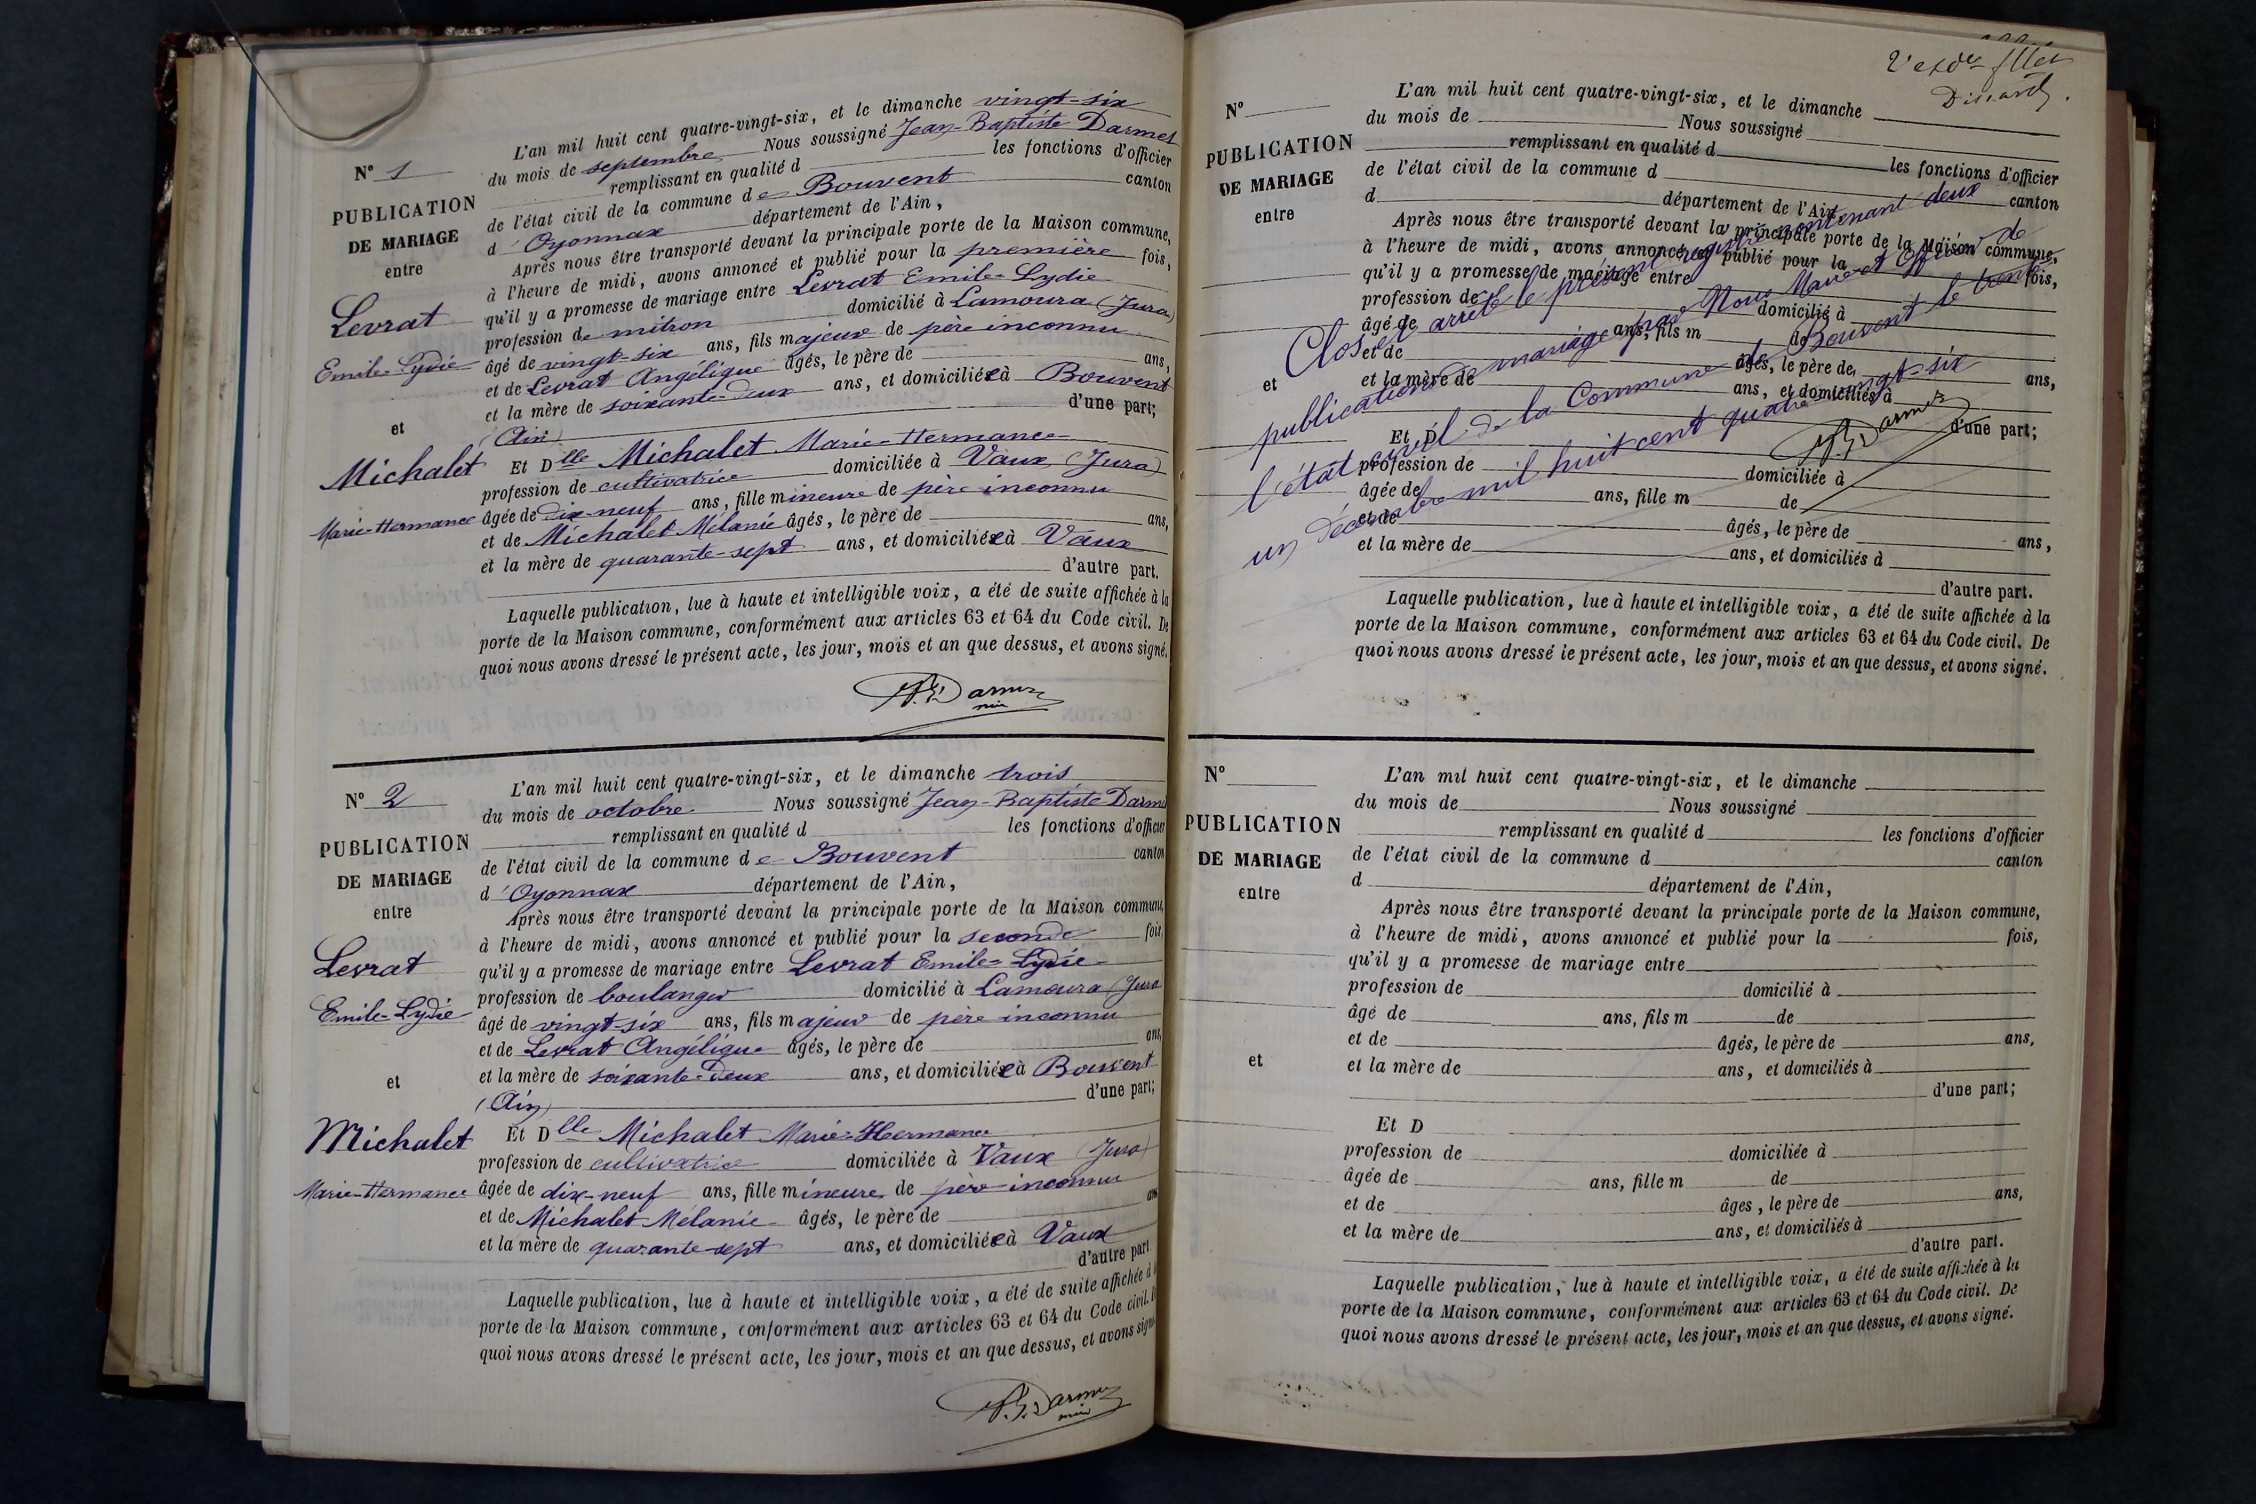 N° 1
PUBLICATION
DE MARIAGE
entre
Levrat
Emile-Lydie
et
Michalet
Marie-Hermance
L'an mil huit cent quatre-vingt-six, et le dimanche vingt-six
du mois de septembre Nous soussigné Jean-Baptiste Darmet
remplissant en qualité d les fonctions d'officier
de l'état civil de la commune de Bouvent canton
d'Oyonnax département de l'Ain,
Après nous être transporté devant la principale porte de la Maison commune,
à l'heure de midi, avons annoncé et publié pour la première fois,
qu'il y a promesse de mariage entre Levrat Emile-Lydie
profession de mitron domicilié à Lamoura (Jura)
âgé de vingt-six ans, fils majeur de père inconnu
et de Levrat Angélique âgés, le père de ans,
et la mère de soixante-deux ans, et domiciliée à Bouvent
(Ain) d'une part;
Et Dlle Michalet Marie-Hermance
profession de cultivatrice domiciliée à Vaux (Jura)
âgée de dix-neuf ans, fille mineure de père inconnu
et de Michalet Mélanie âgés, le père de ans,
et la mère de quarante-sept ans, et domiciliée à Vaux
d'autre part.
Laquelle publication, lue à haute et intelligible voix, a été de suite affichée à la
porte de la Maison commune, conformément aux articles 63 et 64 du Code civil. De
quoi nous avons dressé le présent acte, les jour, mois et an que dessus, et avons signé.
N° 2
PUBLICATION
DE MARIAGE
entre
Levrat
Emile-Lydie
et
Michalet
Marie-Hermance
L'an mil huit cent quatre-vingt-six, et le dimanche trois
du mois de octobre Nous soussigné Jean-Baptiste Darme
remplissant en qualité d les fonctions d'officier
de l'état civil de la commune de Bouvent canton
d'Oyonnax département de l'Ain,
Après nous être transporté devant la principale porte de la Maison commune,
à l'heure de midi, avons annoncé et publié pour la seconde fois,
qu'il y a promesse de mariage entre Levrat Emile-Lydie
profession de boulanger domicilié à Lamoura (Jura
âgé de vingt-six ans, fils majeur de père inconnu
et de Levrat Angélique âgés, le père de ans,
et la mère de soixante-deux ans, et domiciliée à Bouvent
(Ain) d'une part;
Et Dlle Michalet Marie-Hermance
profession de cultivatrice domiciliée à Vaux (Jura)
âgée de dix-neuf ans, fille mineure de père inconnu
et de Michalet Mélanie âgés, le père de an
et la mère de quarante-sept ans, et domiciliée à Vaux
d'autre part
Laquelle publication, lue à haute et intelligible voix, a été de suite affichée à
porte de la Maison commune, conformément aux articles 63 et 64 du Code civil.
quoi nous avons dressé le présent acte, les jour, mois et an que dessus, et avons signé
N°
PUBLICATION
DE MARIAGE
entre
et
L'an mil huit cent quatre-vingt-six, et le dimanche
du mois de Nous soussigné
remplissant en qualité d les fonctions d'officier
de l'état civil de la commune d canton
d département de l'Ain
Après nous être transporté devant la principale porte de la Maison commune,
à l'heure de midi, avons annoncé et publié pour la fois,
qu'il y a promesse de mariage entre
profession de domicilié à
âgé de ans, fils m de
et de âgés, le père de ans,
et la mère de ans, et domiciliés à
d'une part;
Et D
profession de domiciliée à
âgée de ans, fille m de
et de âgés, le père de ans,
et la mère de ans, et domiciliés à
d'autre part.
Laquelle publication, lue à haute et intelligible voix, a été de suite affichée à la
porte de la Maison commune, conformément aux articles 63 et 64 du Code civil. De
quoi nous avons dressé le présent acte, les jour, mois et an que dessus, et avons signé.
Clos et arrêté le présent registre contenant deux
publications de mariage par Nous Maire et Officier de
l'état civil de la Commune de Bouvent le trente
un décembre mil huit cent quatre vingt-six
N°
PUBLICATION
DE MARIAGE
entre
et
L'an mil huit cent quatre-vingt-six, et le dimanche
du mois de Nous soussigné
remplissant en qualité d les fonctions d'officier
de l'état civil de la commune d canton
d département de l'Ain,
Après nous être transporté devant la principale porte de la Maison commune,
à l'heure de midi, avons annoncé et publié pour la fois,
qu'il y a promesse de mariage entre
profession de domicilié à
âgé de ans, fils m de
et de âgés, le père de ans,
et la mère de ans, et domiciliés à
d'une part;
Et D
profession de domiciliée à
âgée de ans, fille m de
et de âges, le père de ans,
et la mère de ans, et domiciliés à
d'autre part.
Laquelle publication, lue à haute et intelligible voix, a été de suite affichée à la
porte de la Maison commune, conformément aux articles 63 et 64 du Code civil. De
quoi nous avons dressé le présent acte, les jour, mois et an que dessus, et avons signé.